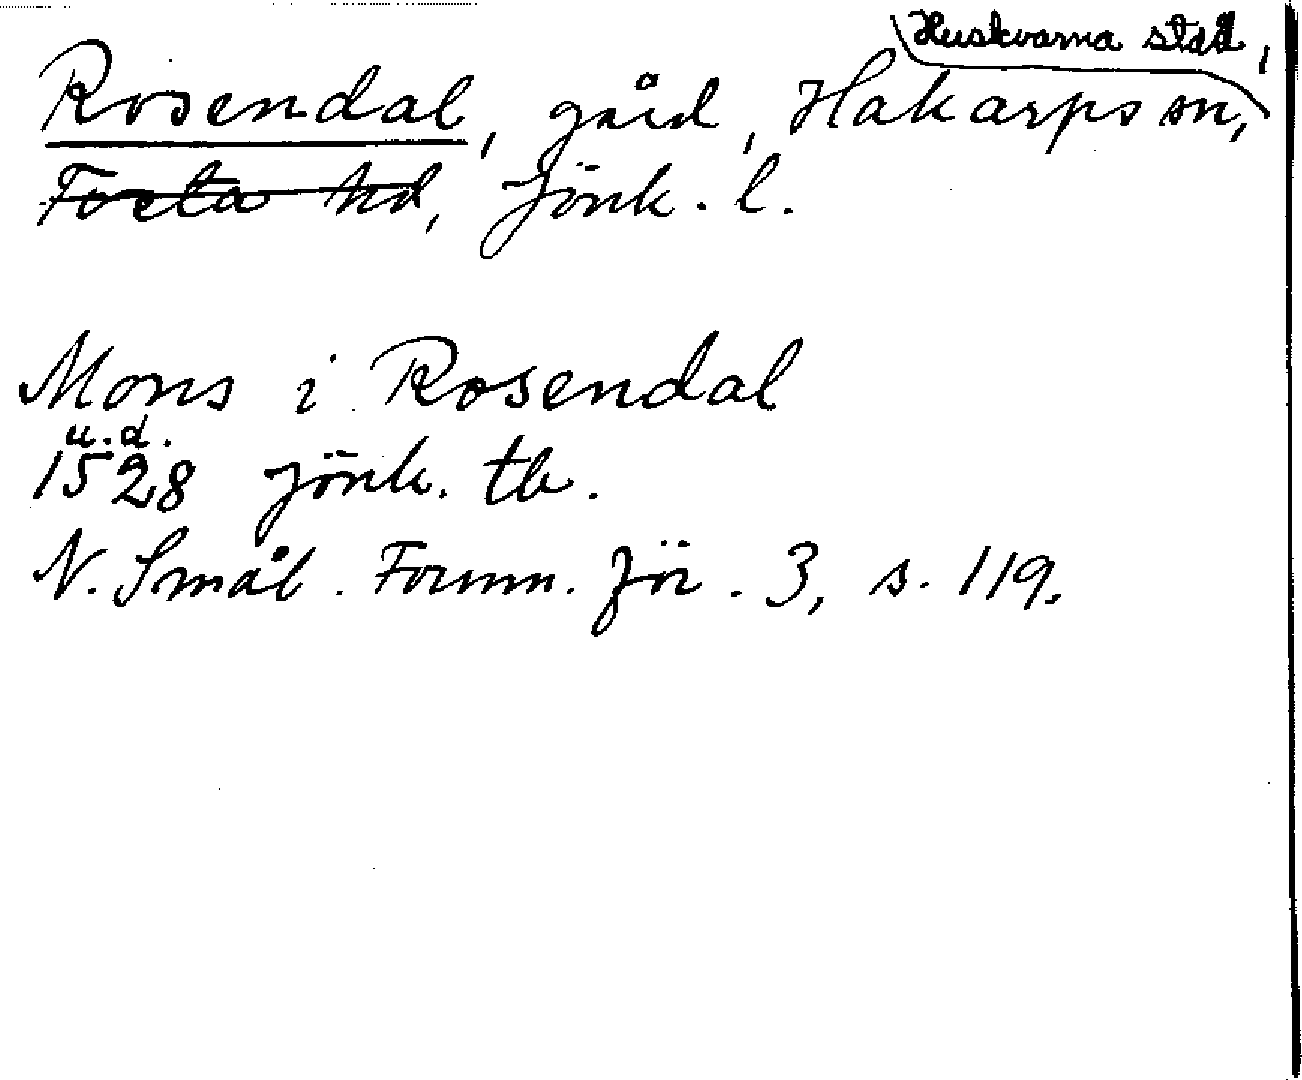 Huskvarna stad,
Rosendal, gård, Hakarps sn,
Tveta hd, Jönk. l.
Mons i Rosendal
u.d.
1528 Jönk. tb.
N. Smål. Fornm. för. 3, s. 119.